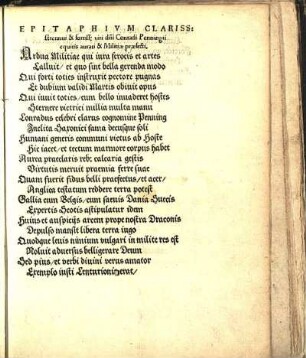 EPITAPHIVM CLARISS:
strenui & fortiss: viri dñi Conradi Penningii
equitis aurati & Militiæ præfecti.
Ardua Militiae qui iura ferocis et artes
Calluit / et quo sint bella gerenda modo
Qui forti toties instruxit pectore pugnas
Et dubium validi Martis obiuit opus
Qui iuuit toties / cum bello inuaderet hostes
Sternere victrici millia multa manu
Conradus celebri clarus cognomine Penning
Inclita Saxonici fama decusque soli
Humani generis communi victus ab Hoste
Hic iacet / et tectum marmore corpus habet
Aurea praeclaris rebꝰ calcaria gestis
Virtutis meruit praemia ferre suae
Quam fuerit fidus belli praefectus / et acer
Anglia testatum reddere terra potest
Gallia cum Belgis / cum saeuis Dania Suecis
Expertis Scotis astipulatur idem
Huius et auspicijs arcem prope nostra Draconis
Depulso mansit libera terra iugo
Quodque leuis nimium vulgari in milite res est
Noluit aduersus belligerare Deum
Sed pius / et verbi diuini verus amator
Exemplo iusti Centurionis erat